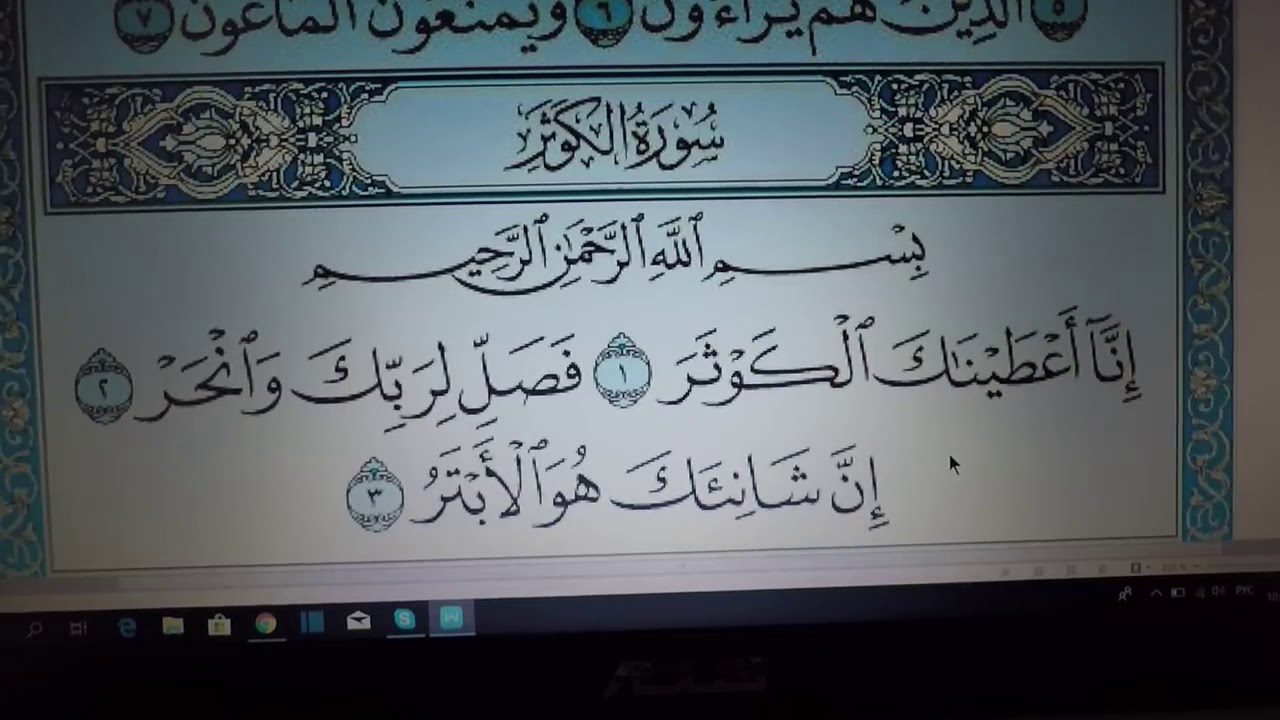 الَّذِينَ هُمْ يُرَاءُونَ ٦ وَيَمْنَعُونَ الْمَاعُونَ ٧
سُورَةُ الكَوْثَرِ
بِسْمِ ٱللَّهِ ٱلرَّحْمَٰنِ ٱلرَّحِيمِ
إِنَّآ أَعْطَيْنَٰكَ ٱلْكَوْثَرَ ١ فَصَلِّ لِرَبِّكَ وَٱنْحَرْ ٢
إِنَّ شَانِئَكَ هُوَ ٱلْأَبْتَرُ ٣
РУС